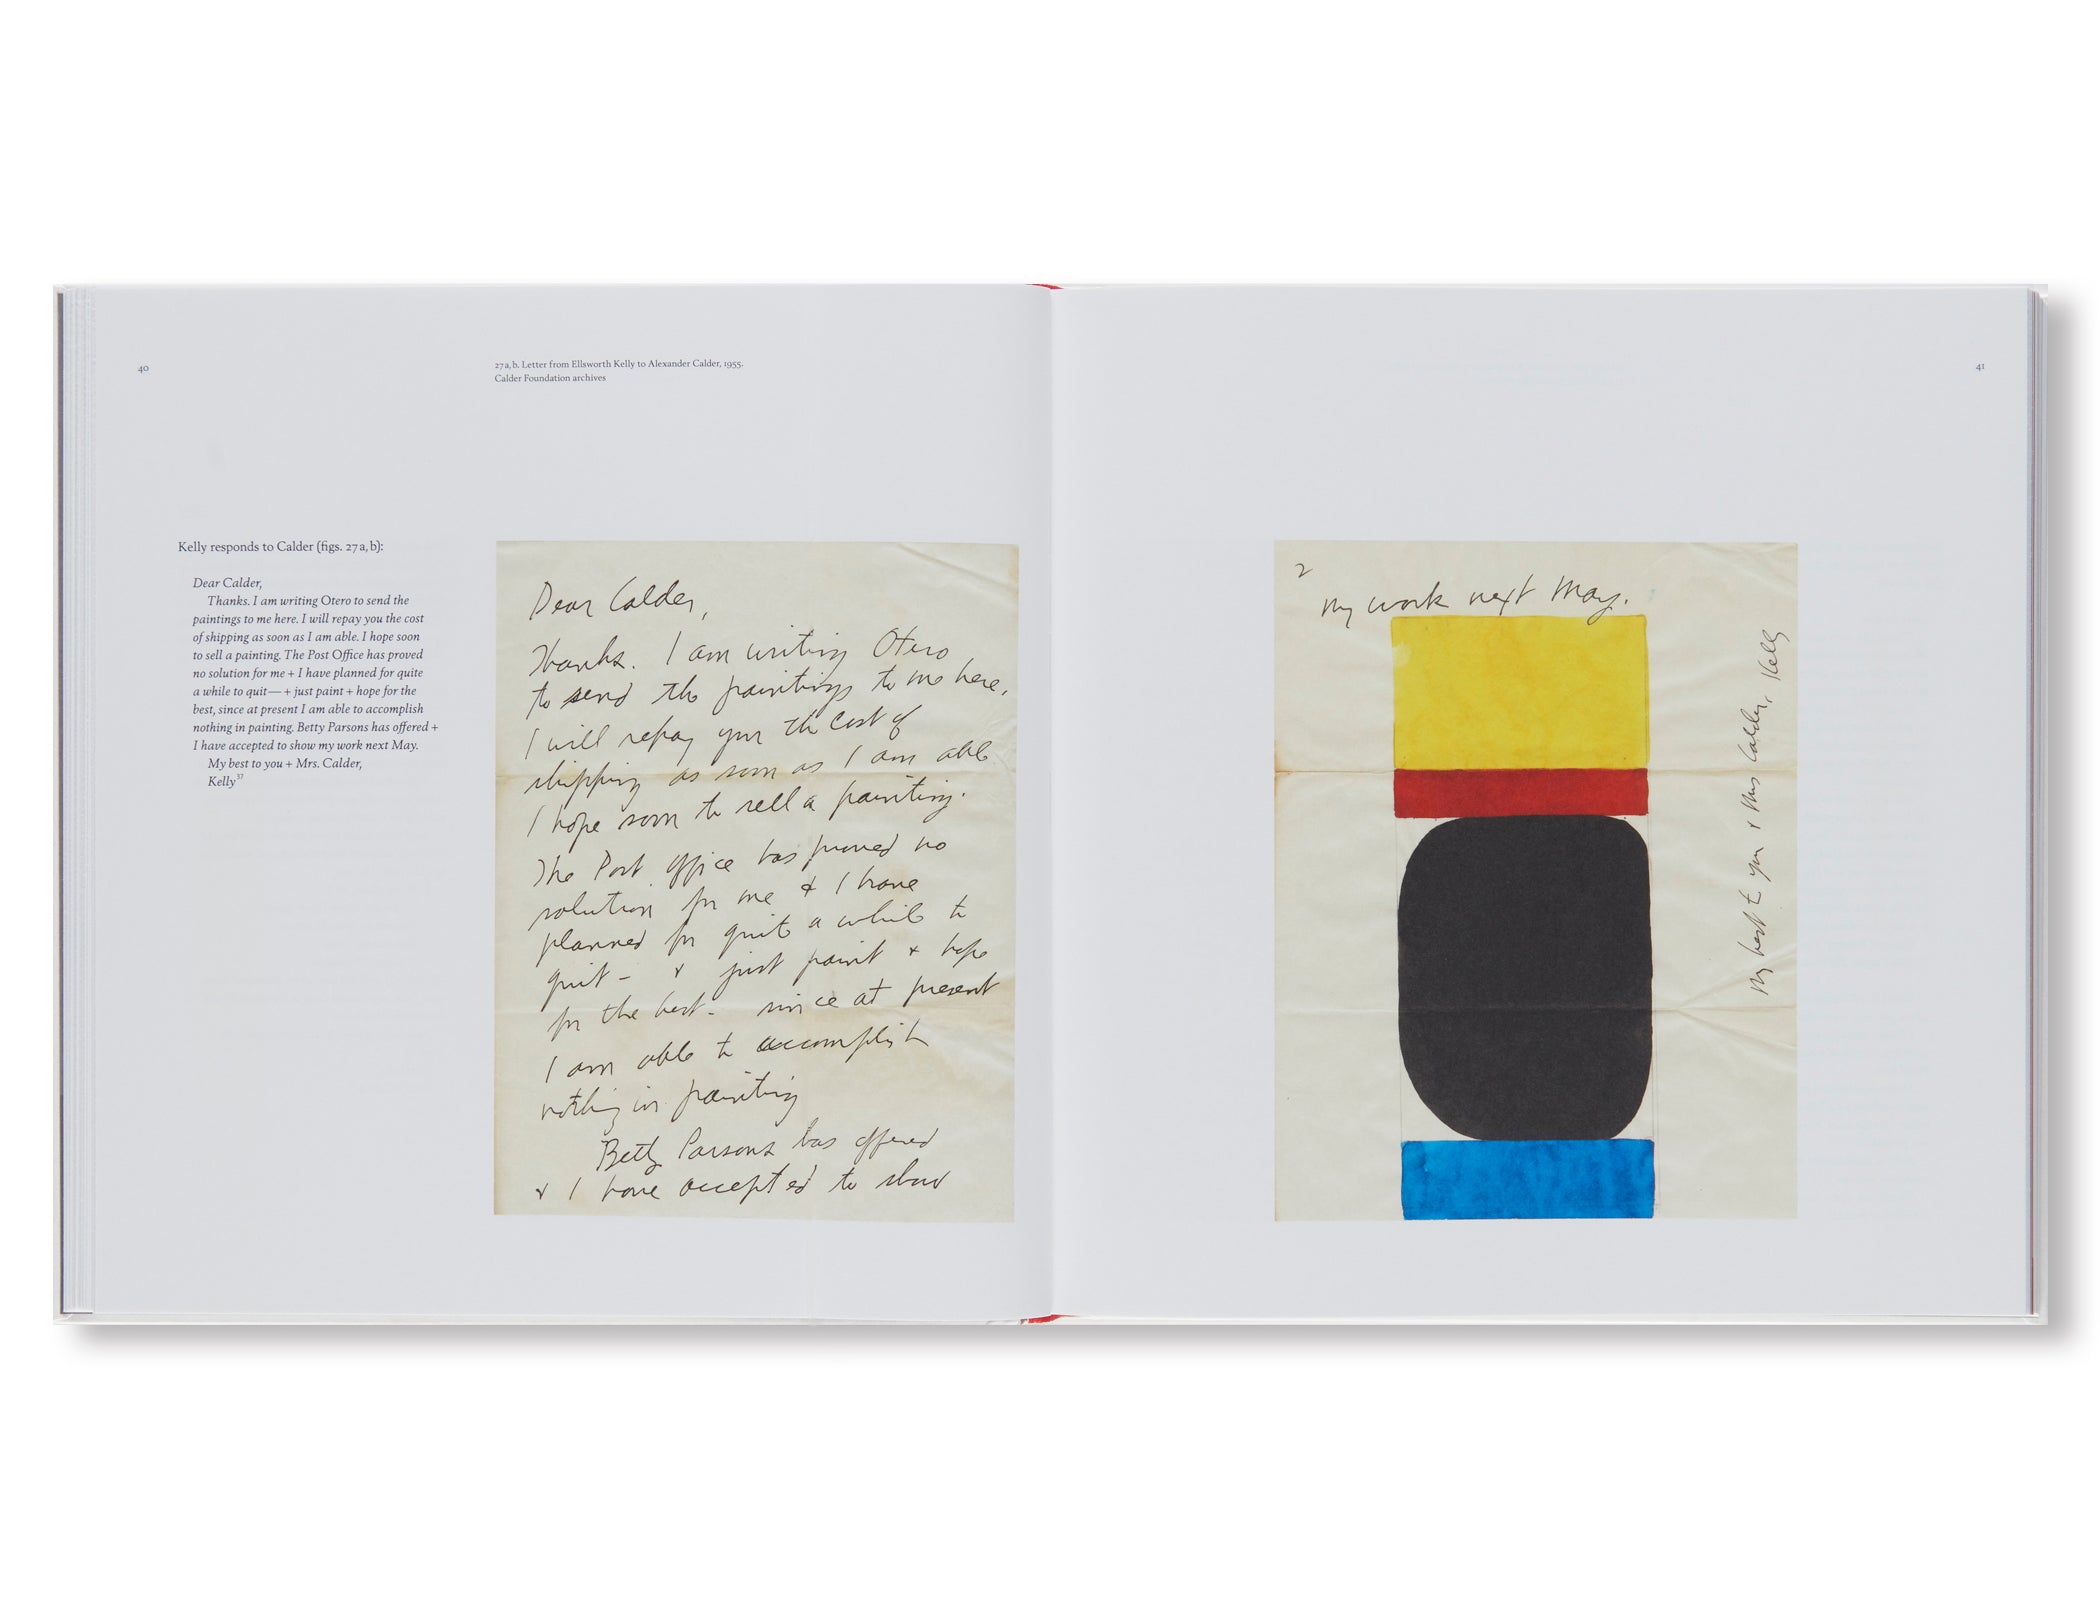 40
27 a, b. Letter from Ellsworth Kelly to Alexander Calder, 1955.
Calder Foundation archives
Kelly responds to Calder (figs. 27 a, b):
Dear Calder,
Thanks. I am writing Otero to send the
paintings to me here. I will repay you the cost
of shipping as soon as I am able. I hope soon
to sell a painting. The Post Office has proved
no solution for me + I have planned for quite
a while to quit— + just paint + hope for the
best, since at present I am able to accomplish
nothing in painting. Betty Parsons has offered +
I have accepted to show my work next May.
My best to you + Mrs. Calder,
Kelly37
Dear Calder,
Thanks. I am writing Otero
to send the paintings to me here,
I will repay you the cost of
shipping as soon as I am able
I hope soon to sell a painting.
The Post Office has proved no
solution for me + I have
planned for quite a while to
quit – + just paint + hope
for the best. since at present
I am able to accomplish
nothing in painting
Betty Parsons has offered
+ I have accepted to show
41
2
my work next May.
My best to you + Mrs Calder, Kelly